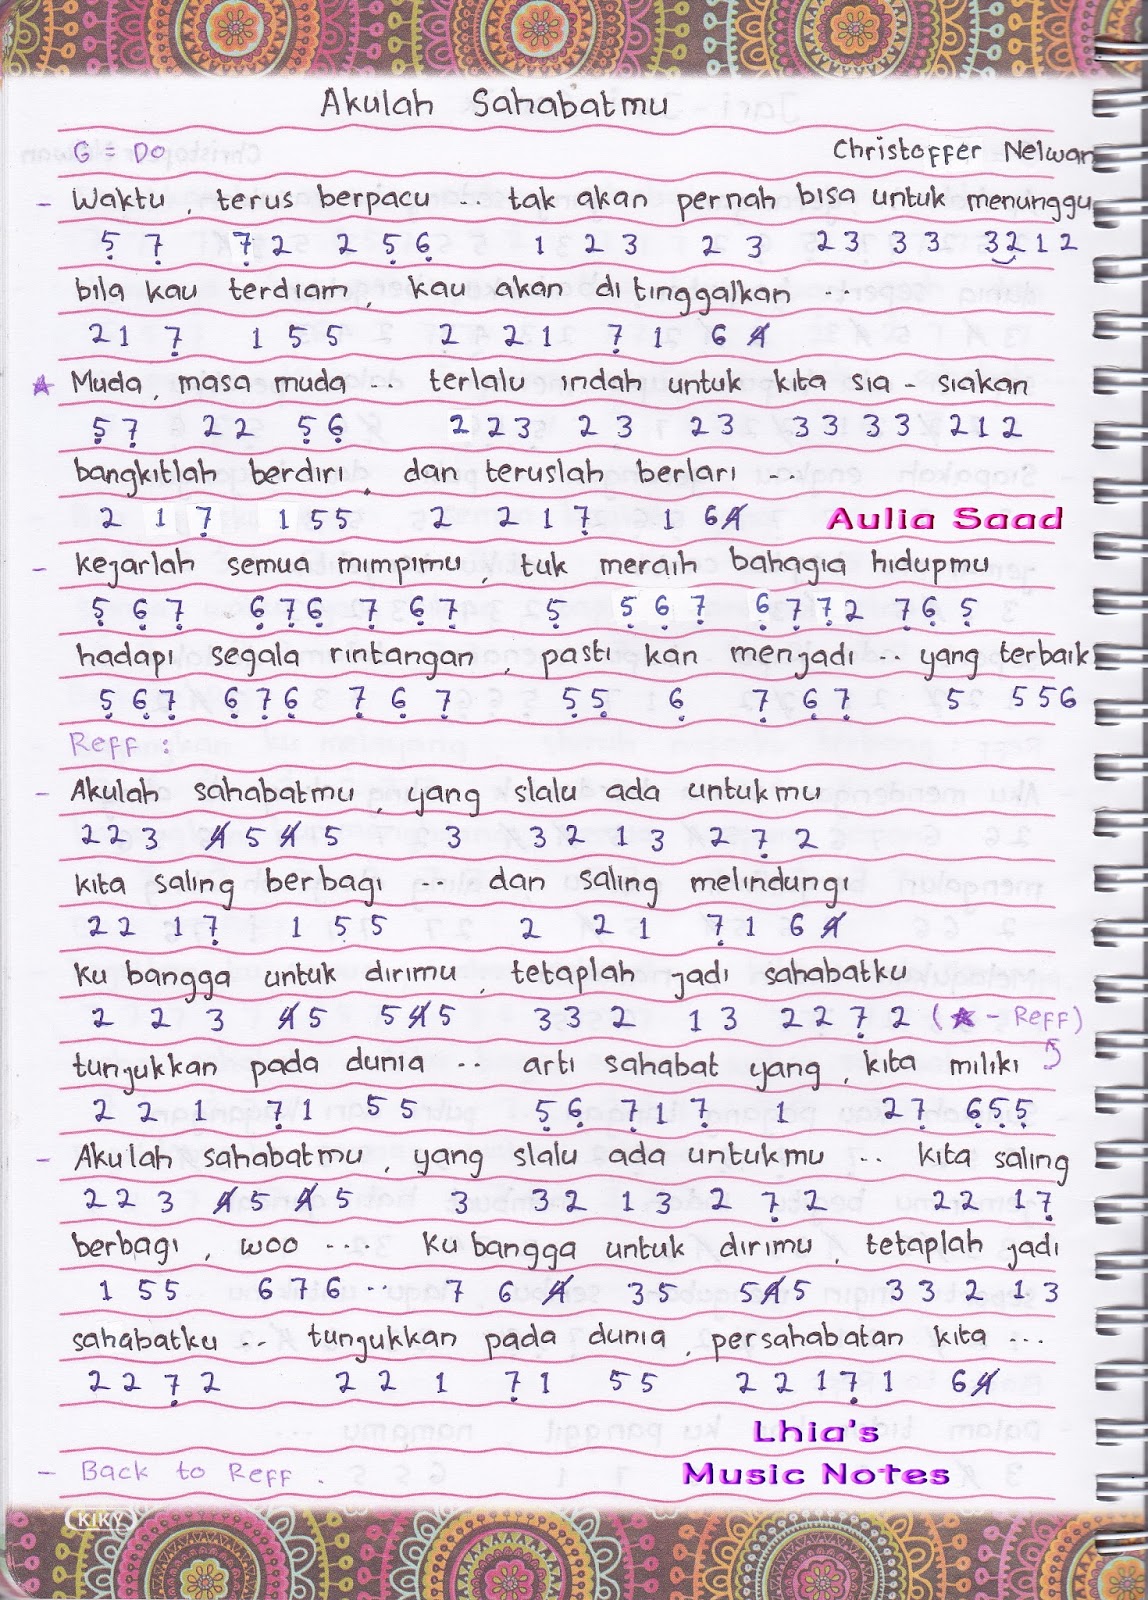 Akulah Sahabatmu
G = Do Christoffer Nelwan
- Waktu, terus berpacu .. tak akan pernah bisa untuk menunggu
5̣ 7̣ 7̣ 2 2 5̣ 6̣ 1 2 3 2 3 2 3 3 3 3 2 1 2
bila kau terdiam, kau akan di tinggalkan ...
2 1 7̣ 1 5 5 2 2 1 7̣ 1 6 4̸
★ Muda, masa muda .. terlalu indah untuk kita sia - siakan
5̣ 7̣ 2 2 5̣ 6̣ 2 2 3 2 3 2 3 3 3 3 3 2 1 2
bangkitlah berdiri, dan teruslah berlari ...
2 1 7̣ 1 5 5 2 2 1 7̣ 1 6 4̸ Aulia Saad
- kejarlah semua mimpimu, tuk meraih bahagia hidupmu
5̣ 6̣ 7̣ 6̣ 7̣ 6̣ 7̣ 6̣ 7̣ 5̣ 5̣ 6̣ 7̣ 6̣ 7̣ 7̣ 2 7̣ 6̣ 5̣
hadapi segala rintangan, pasti kan menjadi .. yang terbaik
5̣ 6̣ 7̣ 6̣ 7̣ 6̣ 7̣ 6̣ 7̣ 5̣ 5̣ 6̣ 7̣ 6̣ 7̣ 5 5 5 6
Reff :
- Akulah sahabatmu, yang slalu ada untukmu
2 2 3 4̸ 5 4̸ 5 3 3 2 1 3 2 7̣ 2
kita saling berbagi .. dan saling melindungi
2 2 1 7̣ 1 5 5 2 2 1 7̣ 1 6 4̸
Ku bangga untuk dirimu, tetaplah jadi sahabatku
2 2 3 4̸ 5 5 4̸ 5 3 3 2 1 3 2 2 7̣ 2 (★ - Reff)
tunjukkan pada dunia .. arti sahabat yang, kita miliki
2 2 1 7̣ 1 5 5 5̣ 6̣ 7̣ 1 7̣ 1 2 7̣ 6̣ 5̣ 5̣
- Akulah sahabatmu, yang slalu ada untukmu .. kita saling
2 2 3 4̸ 5 4̸ 5 3 3 2 1 3 2 7̣ 2 2 2 1 7̣
berbagi, woo .... Ku bangga untuk dirimu, tetaplah jadi
1 5 5 6 7 6 .. 7 6 4̸ 3 5 5 4̸ 5 3 3 2 1 3
sahabatku .. tunjukkan pada dunia, persahabatan kita ...
2 2 7̣ 2 2 2 1 7̣ 1 5 5 2 2 1 7̣ 1 6 4̸
Lhia's
- Back to Reff . Music Notes
KIKY